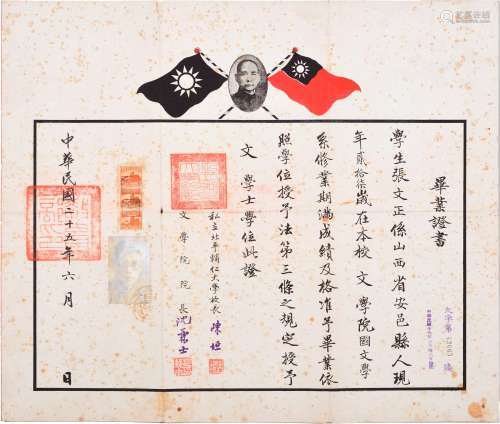 畢業證書
學生張文正係山西省安邑縣人現
年貳拾柒歲在本校文學院國文學
系修業期滿成績及格准予畢業依
照學位授予法第三條之規定授予
文學士學位此證
私立北平輔仁大學校長 陳垣
文學院院長 沈兼士
中華民國二十五年六月 日